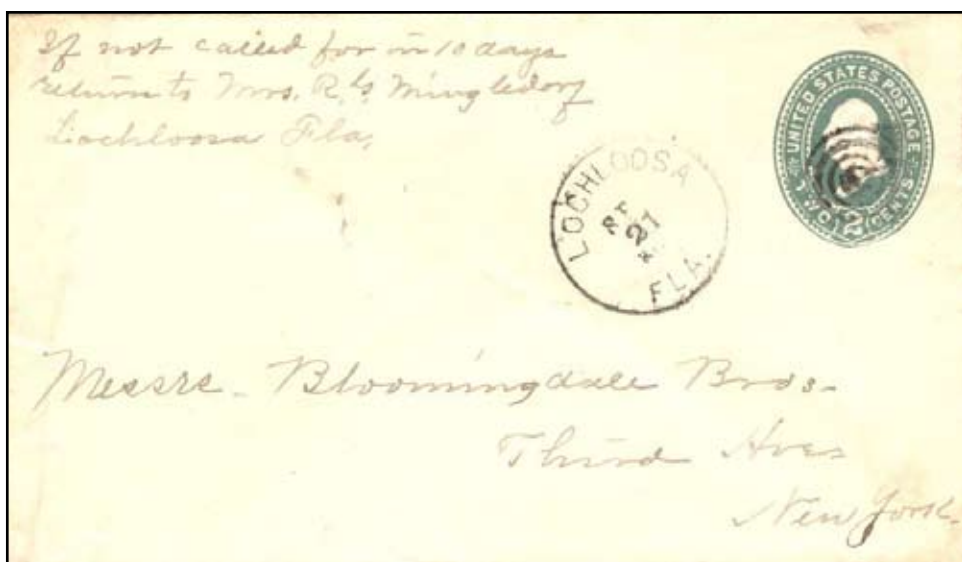 If not called for in 10 days
return to Mrs. R. S. Mingledorf
Lochloosa Fla,
UNITED STATES POSTAGE
TWO 2 CENTS
LOCHLOOSA
21
FLA.
Messrs - Bloomingdale Bros-
Third Aves
New York.